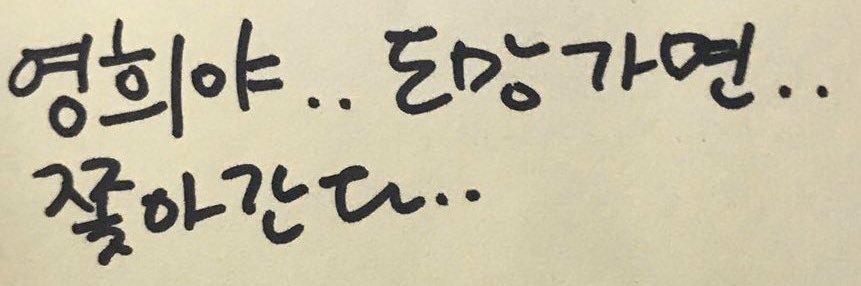 영희야.. 도망가면..
쫓아간다..